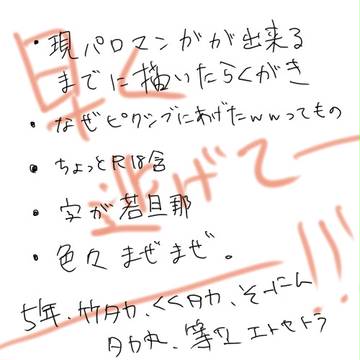 ・現パロマンガが出来る
までに描いたらくがき
・なぜピクシブにあげたwwってもの
・ちょっとR18含
・安が若旦那
・色々まぜまぜ。
5年、竹タカ、くくタカ、そーにん
タカ丸、等々エトセトラ
早く
逃げてー!!!